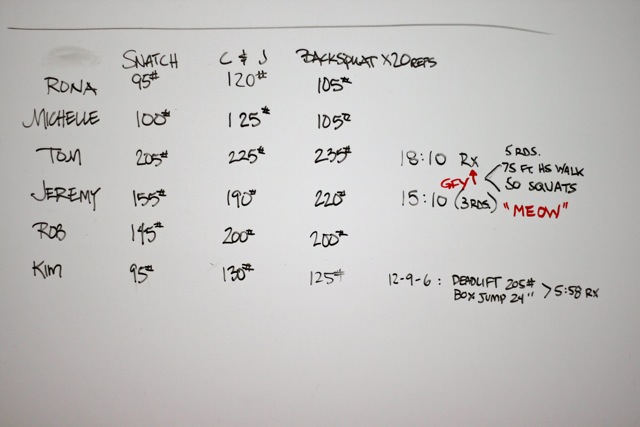 SNATCH C & J BACKSQUAT X20REPS
RONA 95# 120# 105#
MICHELLE 100# 125# 105#
TOM 205# 225# 235# 18:10 Rx 5 RDS.
75 FT HS WALK
GFY 50 SQUATS
JEREMY 155# 190# 220# 15:10 (3 RDS.) "MEOW"
ROB 145# 200# 200#
KIM 95# 130# 125# 12-9-6 : DEADLIFT 205# > 5:58 RX
BOX JUMP 24"